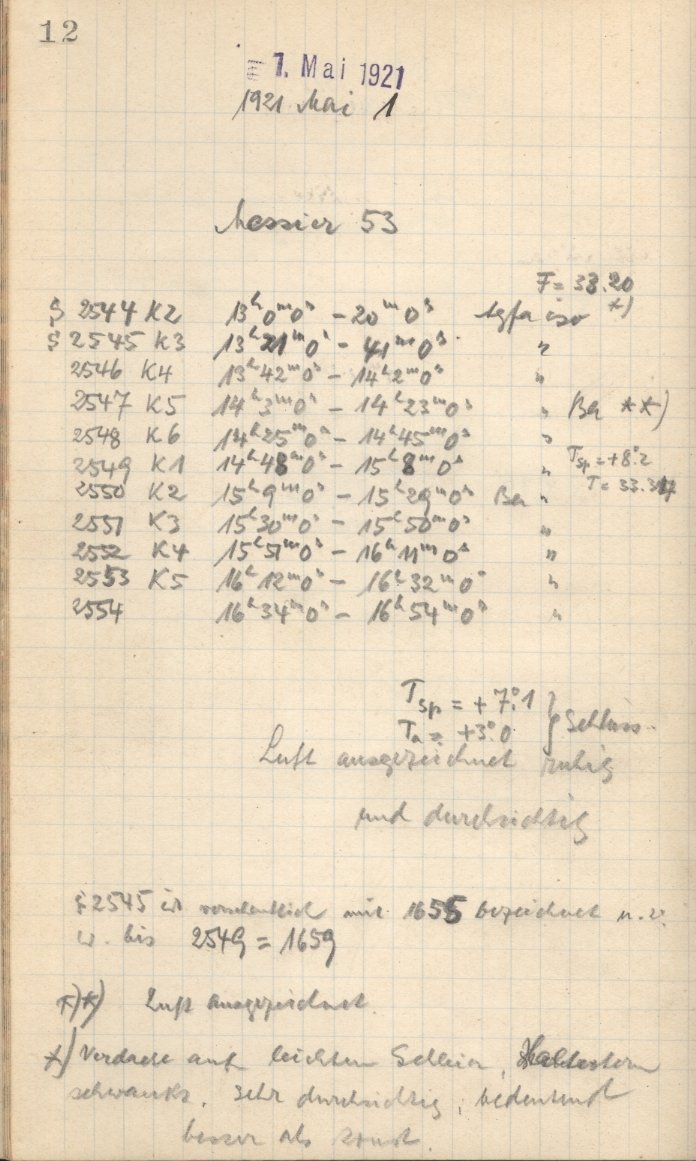 12
1. Mai 1921
1921 Mai 1
Messier 53
F = 38.20
S 2544 K2 13ʰ0ᵐ0ˢ – 20ᵐ0ˢ Agfa iso *)
S 2545 K3 13ʰ21ᵐ0ˢ – 41ᵐ0ˢ "
2546 K4 13ʰ42ᵐ0ˢ – 14ʰ2ᵐ0ˢ "
2547 K5 14ʰ3ᵐ0ˢ – 14ʰ23ᵐ0ˢ " Ba **)
2548 K6 14ʰ25ᵐ0ˢ – 14ʰ45ᵐ0ˢ "
2549 K1 14ʰ48ᵐ0ˢ – 15ʰ8ᵐ0ˢ " Tsp = +8°.2
2550 K2 15ʰ9ᵐ0ˢ – 15ʰ29ᵐ0ˢ Ba "
2551 K3 15ʰ30ᵐ0ˢ – 15ʰ50ᵐ0ˢ "
2552 K4 15ʰ51ᵐ0ˢ – 16ʰ11ᵐ0ˢ "
2553 K5 16ʰ12ᵐ0ˢ – 16ʰ32ᵐ0ˢ "
2554 16ʰ34ᵐ0ˢ – 16ʰ54ᵐ0ˢ "
Tsp = +7°.1 } Schluss.
Ta = +3°.0
Luft ausgezeichnet ruhig
und durchsichtig
S 2545 ist versehentlich mit 1655 bezeichnet u.
bis 2549 = 1659
*)*) Luft ausgezeichnet.
*) Verdacht auf leichten Schleier, Haltestern
schwankt. Sehr durchsichtig, bedeutend
besser als sonst.